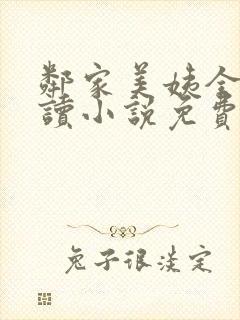 鄰家美姨全
讀小說免費
兔子很淡定